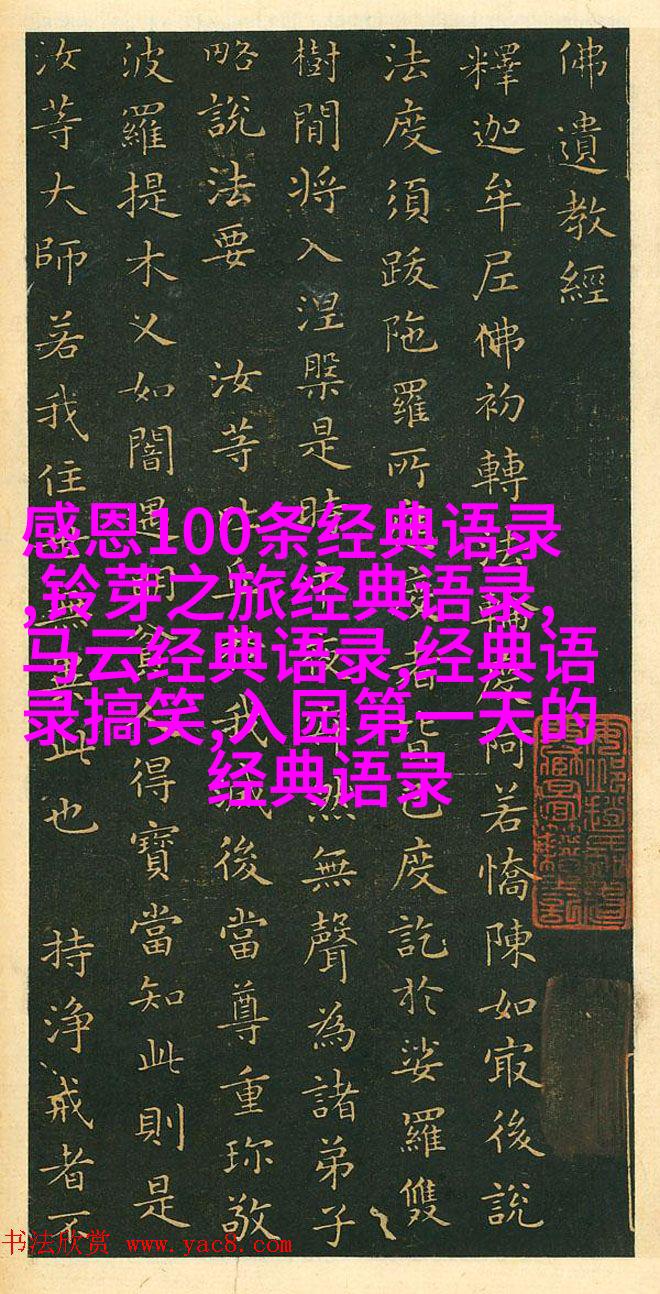 佛遺教經
釋迦牟尼佛初轉法輪度阿若憍陳如㝡後說
法度須跋陁羅所度者皆已度訖於娑羅雙
樹間將入涅槃是時中夜然無聲為諸弟子
略說法要 汝等比丘我滅後當尊重珎敬
波羅提木叉如闇遇明貧人得寶當知此則是
汝等大師若我住無異此也 持淨戒者不
感恩100条经典语录
,铃芽之旅经典语录,
马云经典语录,经典语
录搞笑,入园第一天的
经典语录
书法欣赏 www.yac8.com